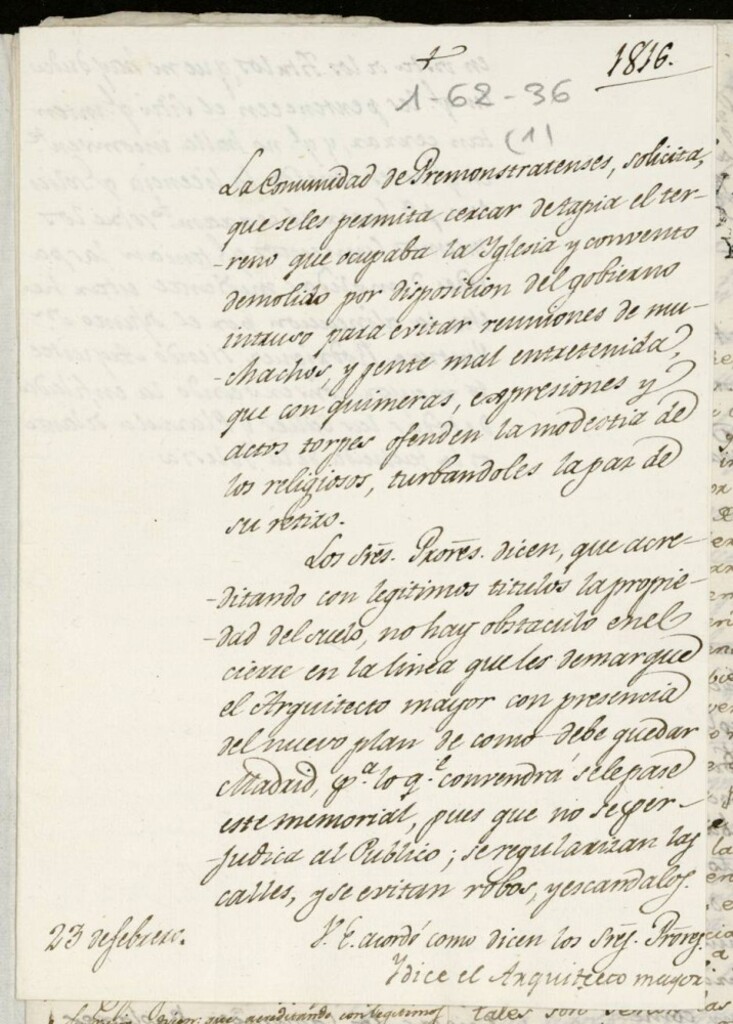 1816.
1-62-36
(1)
La Comunidad de Premonstratenses, solicita,
que se les permita cercar de tapia el ter-
-reno que ocupaba la Yglesia y convento
demolido por disposicion del gobierno
intruso para evitar reuniones de mu-
-chachos, y gente mal entretenida,
que con quimeras, expresiones y
actos torpes ofenden la modestia de
los religiosos, turbandoles la paz de
su retiro.
Los Sres. Prores. dicen, que acre-
-ditando con legitimos titulos la propie-
-dad del suelo, no hay obstaculo en el
cierre en la linea que les demarque
el Arquitecto mayor con presencia
del nuevo plan de como debe quedar
Madrid, pa. lo qe. convendrá se le pase
este memorial, pues que no se per-
-judica al Publico; se regularizan las
calles, y se evitan robos, y escandalos.
23 de febrero.
V. E. acordó como dicen los Sres. Prores.
Ydice el Arquitecto mayor
que acreditando con legitimos
tales son